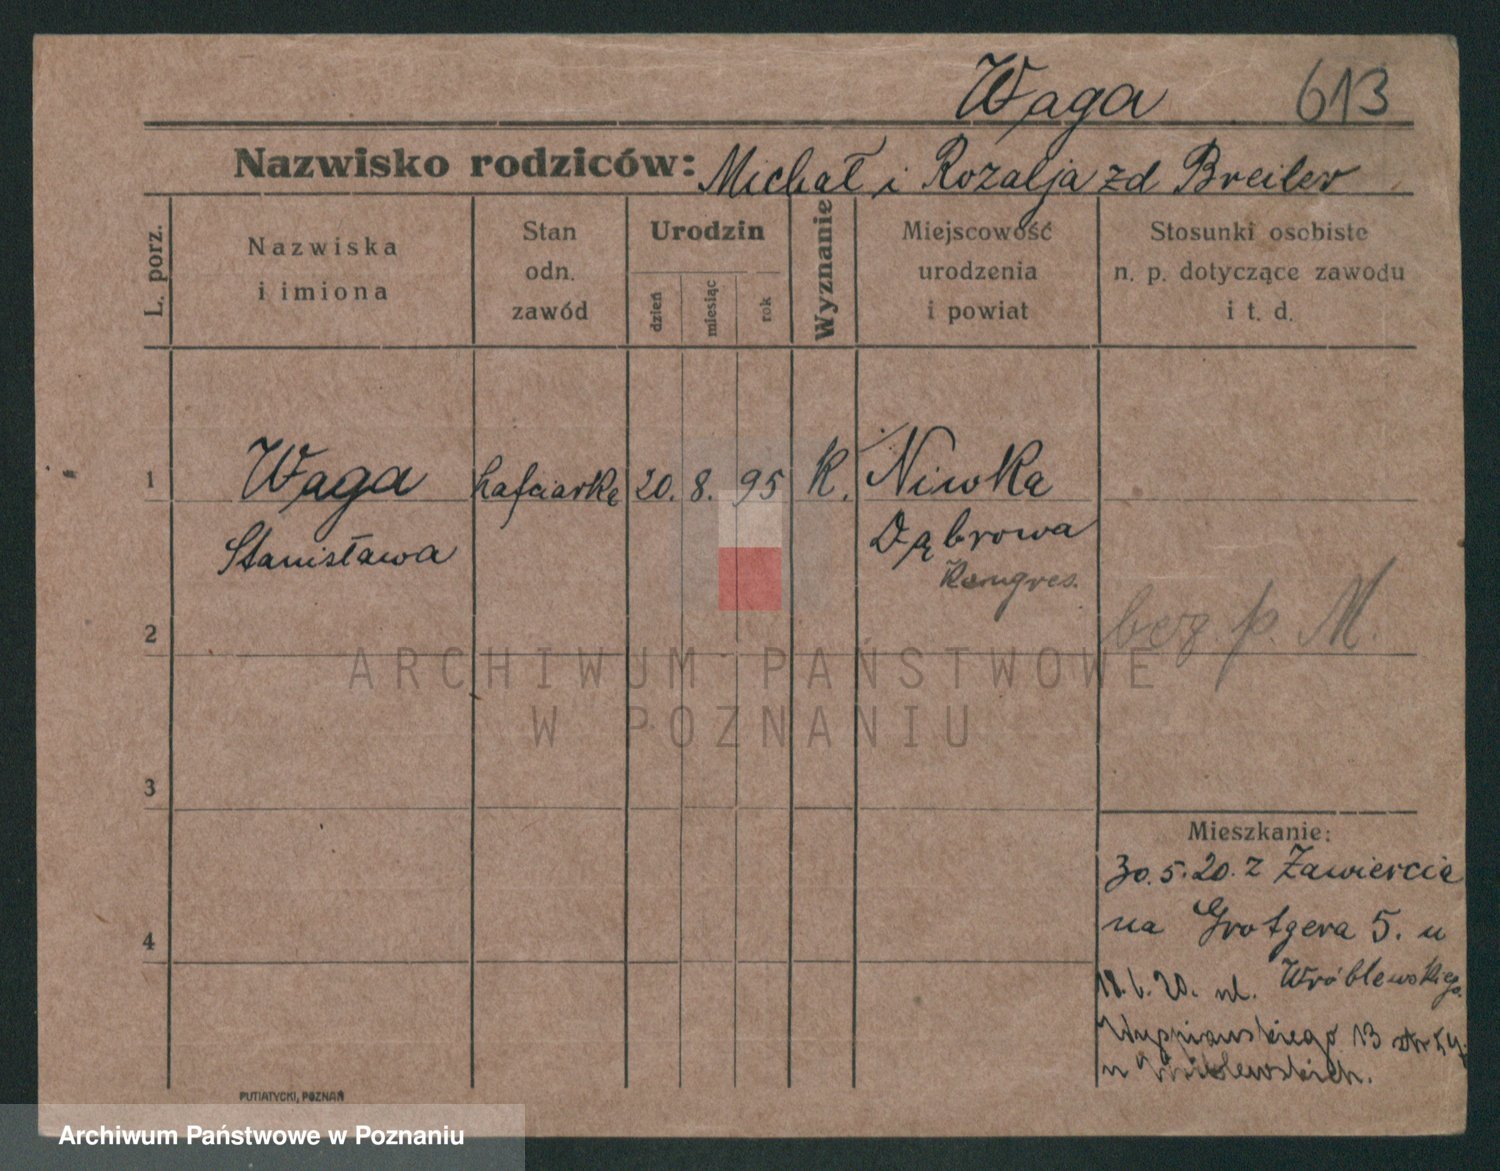 Waga 613
Nazwisko rodziców: Michał i Rozalja zd Breiler
L. porz.
Nazwiska
i imiona
Stan
odn.
zawód
Urodzin
dzień
miesiąc
rok
Wyznanie
Miejscowość
urodzenia
i powiat
Stosunki osobiste
n. p. dotyczące zawodu
i t. d.
1 Waga hafciarka 20. 8. 95 K. Niwka
Stanisława Dąbrowa
Kongres.
2 p. M.
3
4
Mieszkanie:
30.5.20. z Zawiercia
na Grotgera 5. u
Wróblewskiego
20. ul.
13
u
ARCHIWUM PAŃSTWOWE
W POZNANIU
PUTIATYCKI, POZNAŃ
Archiwum Państwowe w Poznaniu